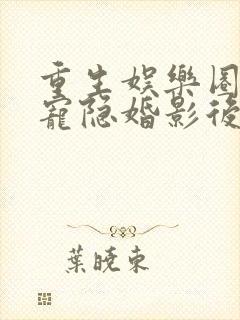 重生娱樂圈
寵隐婚影後
葉曉東